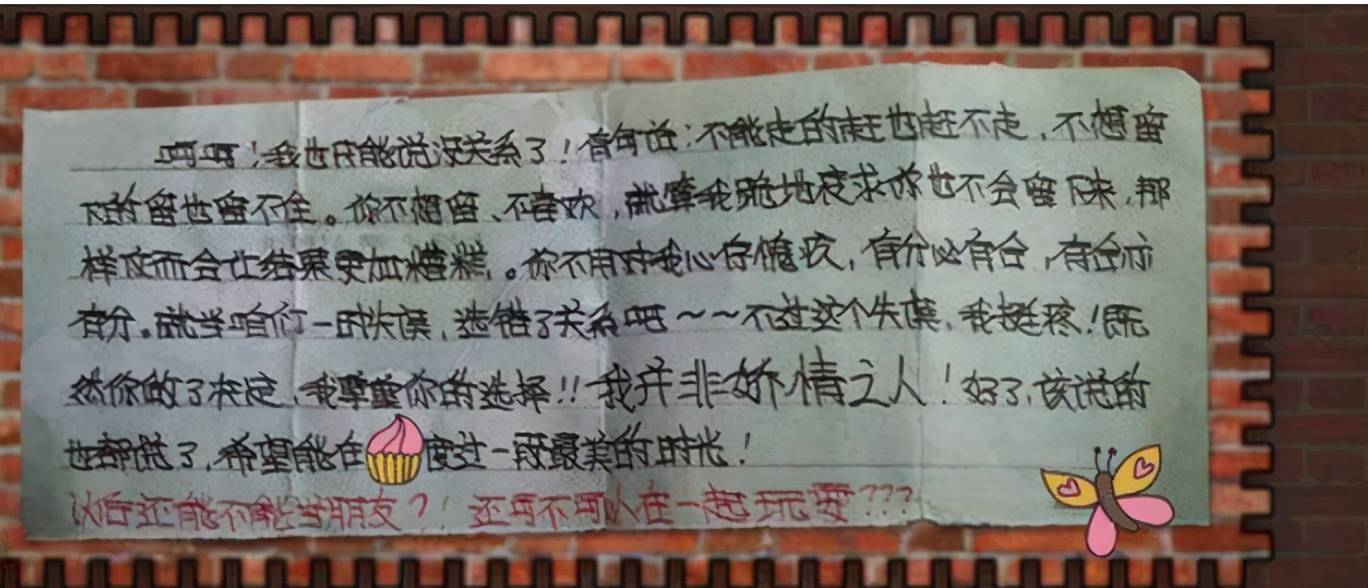 呵呵！我也只能说没关系了！有句话：不能走的赶也赶不走，不想留
下的留也留不住。你不想留、不喜欢，就算我跪地哀求你也不会留下来，那
样反而会让结果更加糟糕。你不用对我心存愧疚，有分必有合，有合亦
有分。就当咱们一时失误，选错了关系吧～～不过这个失误，我挺疼！既
然你做了决定，我尊重你的选择！！我并非娇情之人！好了，该说的
也都说了，希望能在度过一段最美的时光！
以后还能不能当朋友？！还可不可以在一起玩耍？？？